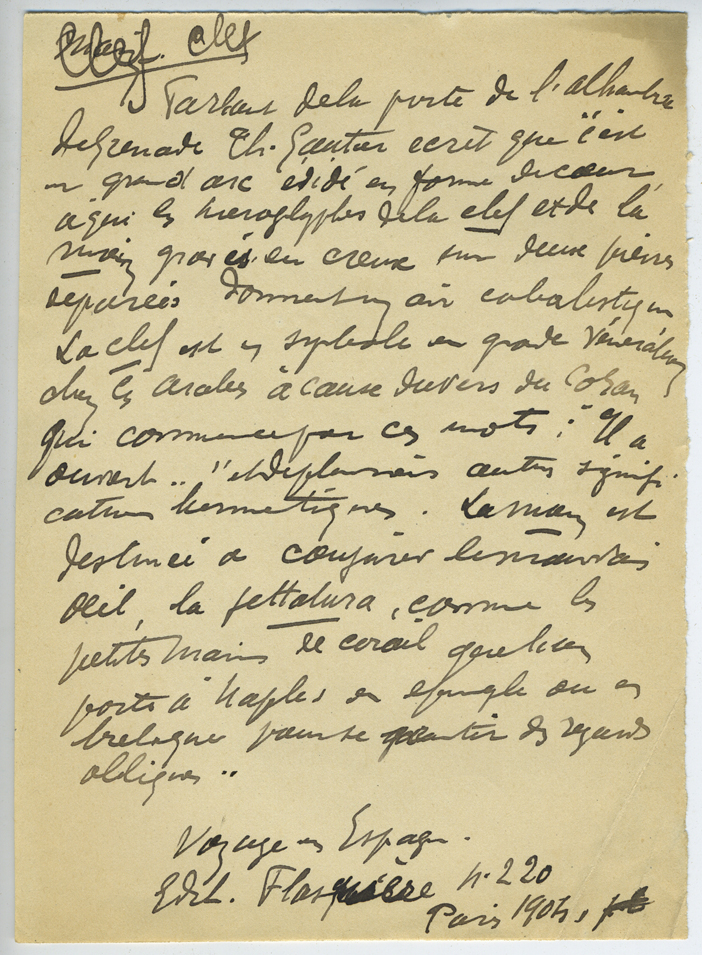 Clef. Clef
Parlant de la porte de l'alhambra
de Grenade Th. Gautier ecrit que "c'est
un grand arc évidé en forme de cœur,
à qui les hieroglyphes de la clef et de la
main gravés en creux sur deux pierres
séparées donnent un air cabalistique
La clef est un symbole en grande vénération
chez les arabes à cause du vers du Coran
qui commence par ces mots : "Il a
ouvert .. " et de plusieurs autres signifi
cations hermetiques. La main est
destinée a conjurer le mauvais
œil, la jettatura, comme les
petites mains de corail que l'on
porte à Naples en epingle ou en
breloque pour se garantir des regards
obliques ..
Voyage en Espagne.
Edit. Flasquère p. 220
Paris 1904